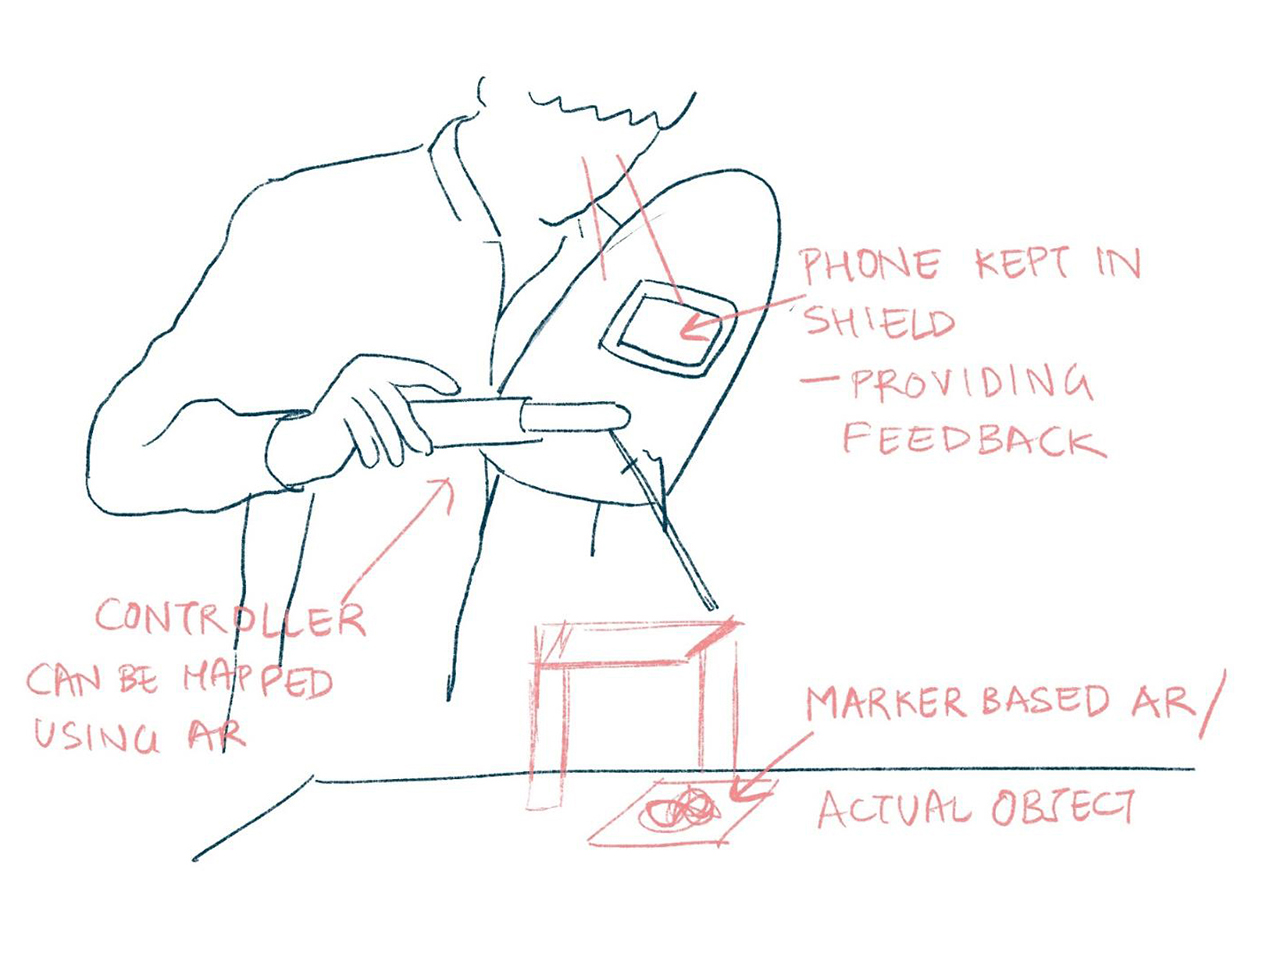 PHONE KEPT IN
SHIELD
— PROVIDING
FEEDBACK
CONTROLLER
CAN BE MAPPED
USING AR
MARKER BASED AR/
ACTUAL OBJECT